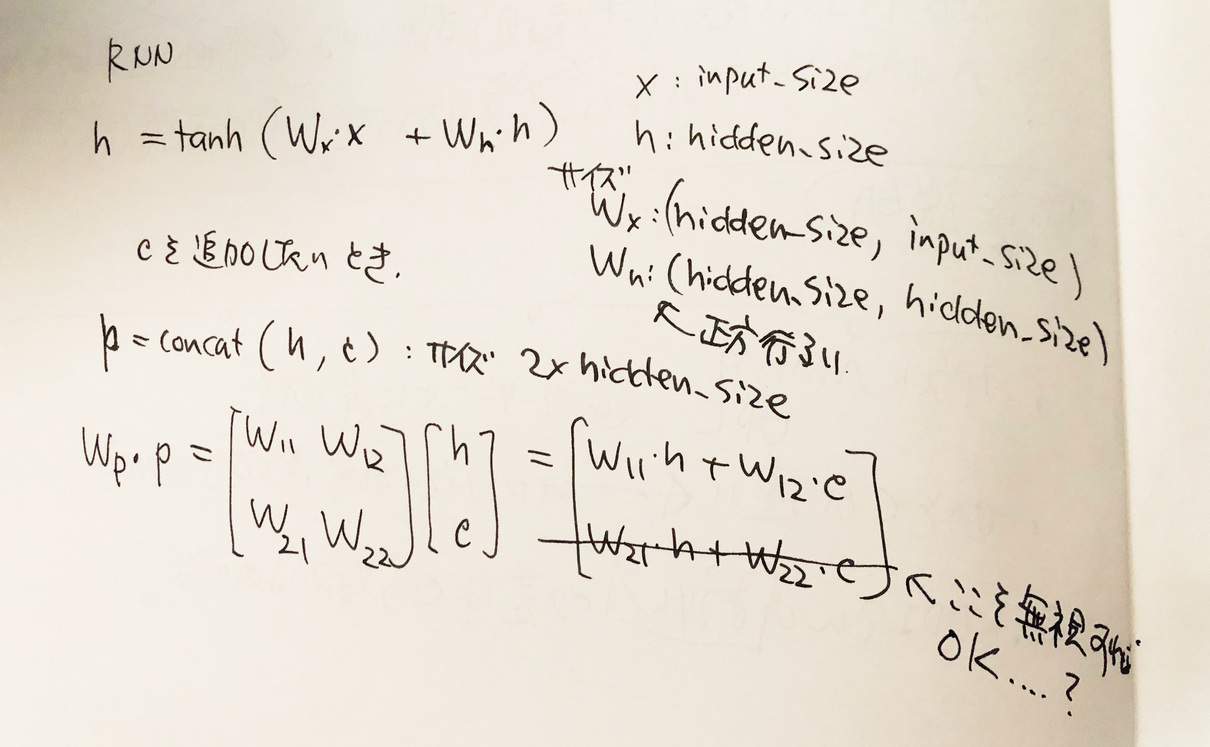 RNN
h = tanh (Wx・x + Wh・h)
x : input_size
h : hidden_size
サイズ
Wx : (hidden_size, input_size)
Wh : (hidden_size, hidden_size)
↖ 正方行列。
cを追加したいとき.
p = concat (h, c) : サイズ 2x hidden_size
Wp・p = [W11 W12 W21 W22] [h c] = [W11・h + W12・c W21・h + W22・c]
↖ ここを無視すれば
OK....?